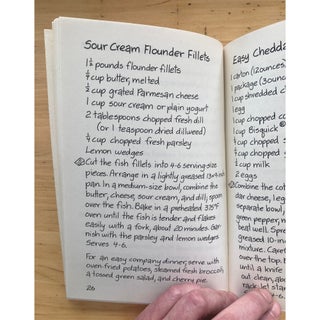 Sour Cream Flounder Fillets
1½ pounds flounder fillets
¼ cup butter, melted
½ cup grated Parmesan cheese
1 cup sour cream or plain yogurt
2 tablespoons chopped fresh dill
(or 1 teaspoon dried dillweed)
¼ cup chopped fresh parsley
Lemon wedges
Cut the fish fillets into 4-6 serving-size
pieces. Arrange in a lightly greased 13x9-inch
pan. In a medium-size bowl, combine the
butter, cheese, sour cream, and dill; spoon
over the fish. Bake in a preheated 375°F
oven until the fish is tender and flakes
easily with a fork, about 20 minutes. Gar-
nish with the parsley and lemon wedges.
Serves 4-6.
For an easy company dinner, serve with
oven-fried potatoes, steamed fresh broccoli,
a tossed green salad, and cherry pie.
26
Easy Chedda
1 carton (12 ounces)
1 package (3 ounce
1 cup shredded c
1 egg
1 cup chopped
1 cup Bisquick®
¼ cup chopped
1 cup milk
2 eggs
Combine the cot
dar cheese,
separate bowl,
green pepper,
beat well. Spre
greased 10-in
mixture. Care
over the top.
until a knife
out clean, abo
rack; let stan